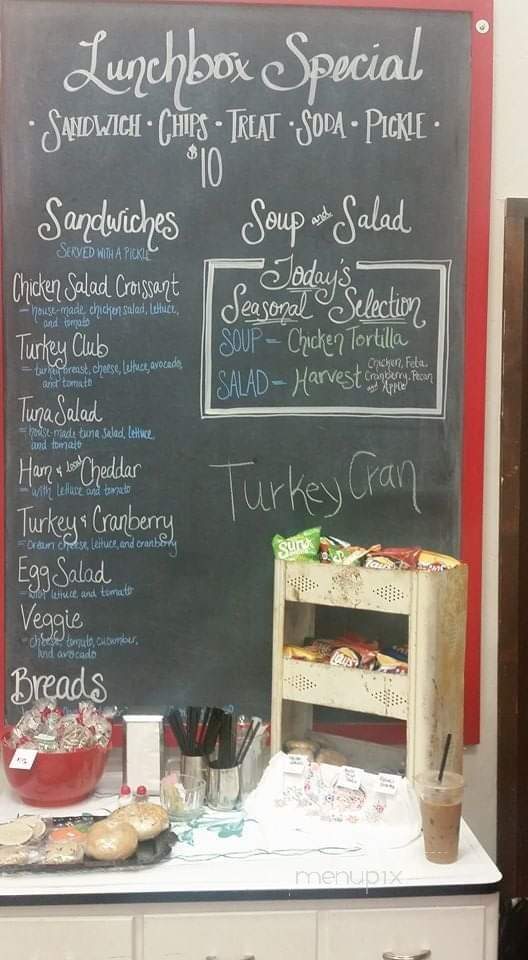 Lunchbox Special
· Sandwich · Chips · Treat · Soda · Pickle ·
$10
Sandwiches
Served with a pickle
Chicken Salad Croissant
- house-made chicken salad, lettuce,
and tomato
Turkey Club
- turkey breast, cheese, lettuce, avocado,
and tomato
Tuna Salad
- house-made tuna salad, lettuce
and tomato
Ham & local Cheddar
- with lettuce and tomato
Turkey & Cranberry
- cream cheese, lettuce, and cranberry
Egg Salad
- with lettuce and tomato
Veggie
- cheese, tomato, cucumber,
and avocado
Breads
Soup and Salad
Today's
Seasonal Selection
SOUP - Chicken Tortilla
SALAD - Harvest Chicken, Feta,
Cranberry, Pecan
and Apple
Turkey Cran
Sun
Lay's
Lay's
menupix